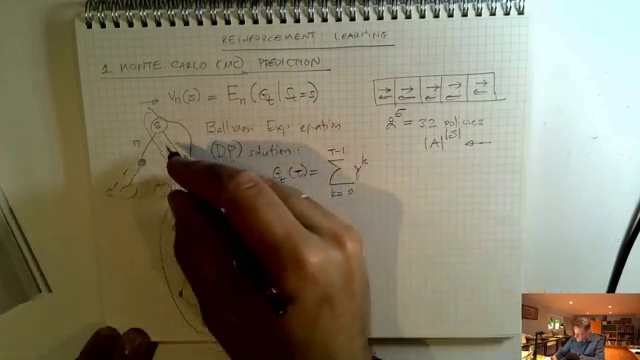 REINFORCEMENT LEARNING
1. MONTE CARLO (MC) PREDICTION
Vπ(s) = Eπ(Gt | St=s)
Bellman Exp. equation
(DP) solution:
Gt(τ) = Σ γ^k
T-1
k=0
2^5 = 32 policies
|A|^|S|